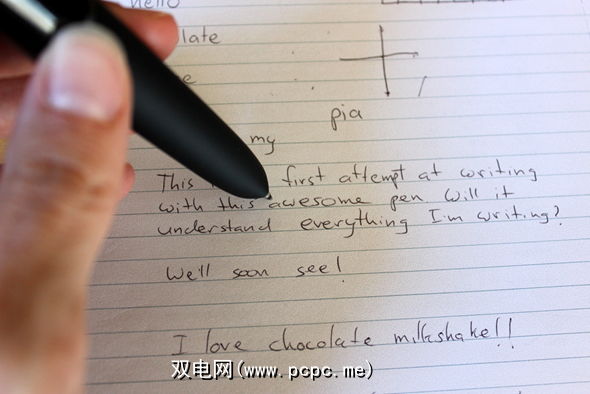 hello
late
e
pia
my
This first attempt at writing
with this awesome pen Will it
understand everything I'm writing?
We'll soon see!
I love chocolate milkshake!!
双电网(www.pcpc.me)